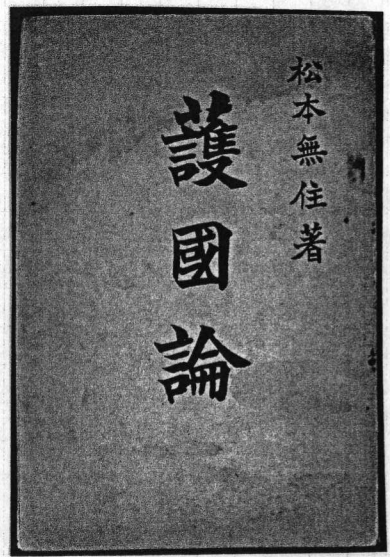 松本無住著
護國論